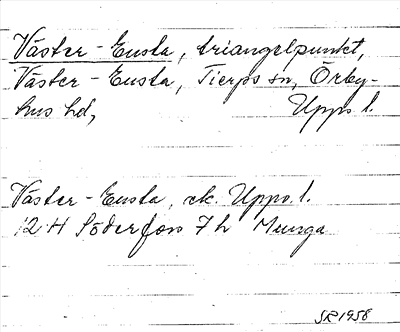 Väster-Ensta, triangelpunkt,
Väster-Ensta, Tierps sn, Örby-
hus hd, Upps. l.
Väster-Ensta, ek. Upps. l.
12 H Söderfors 7 h Munga
SR 1958